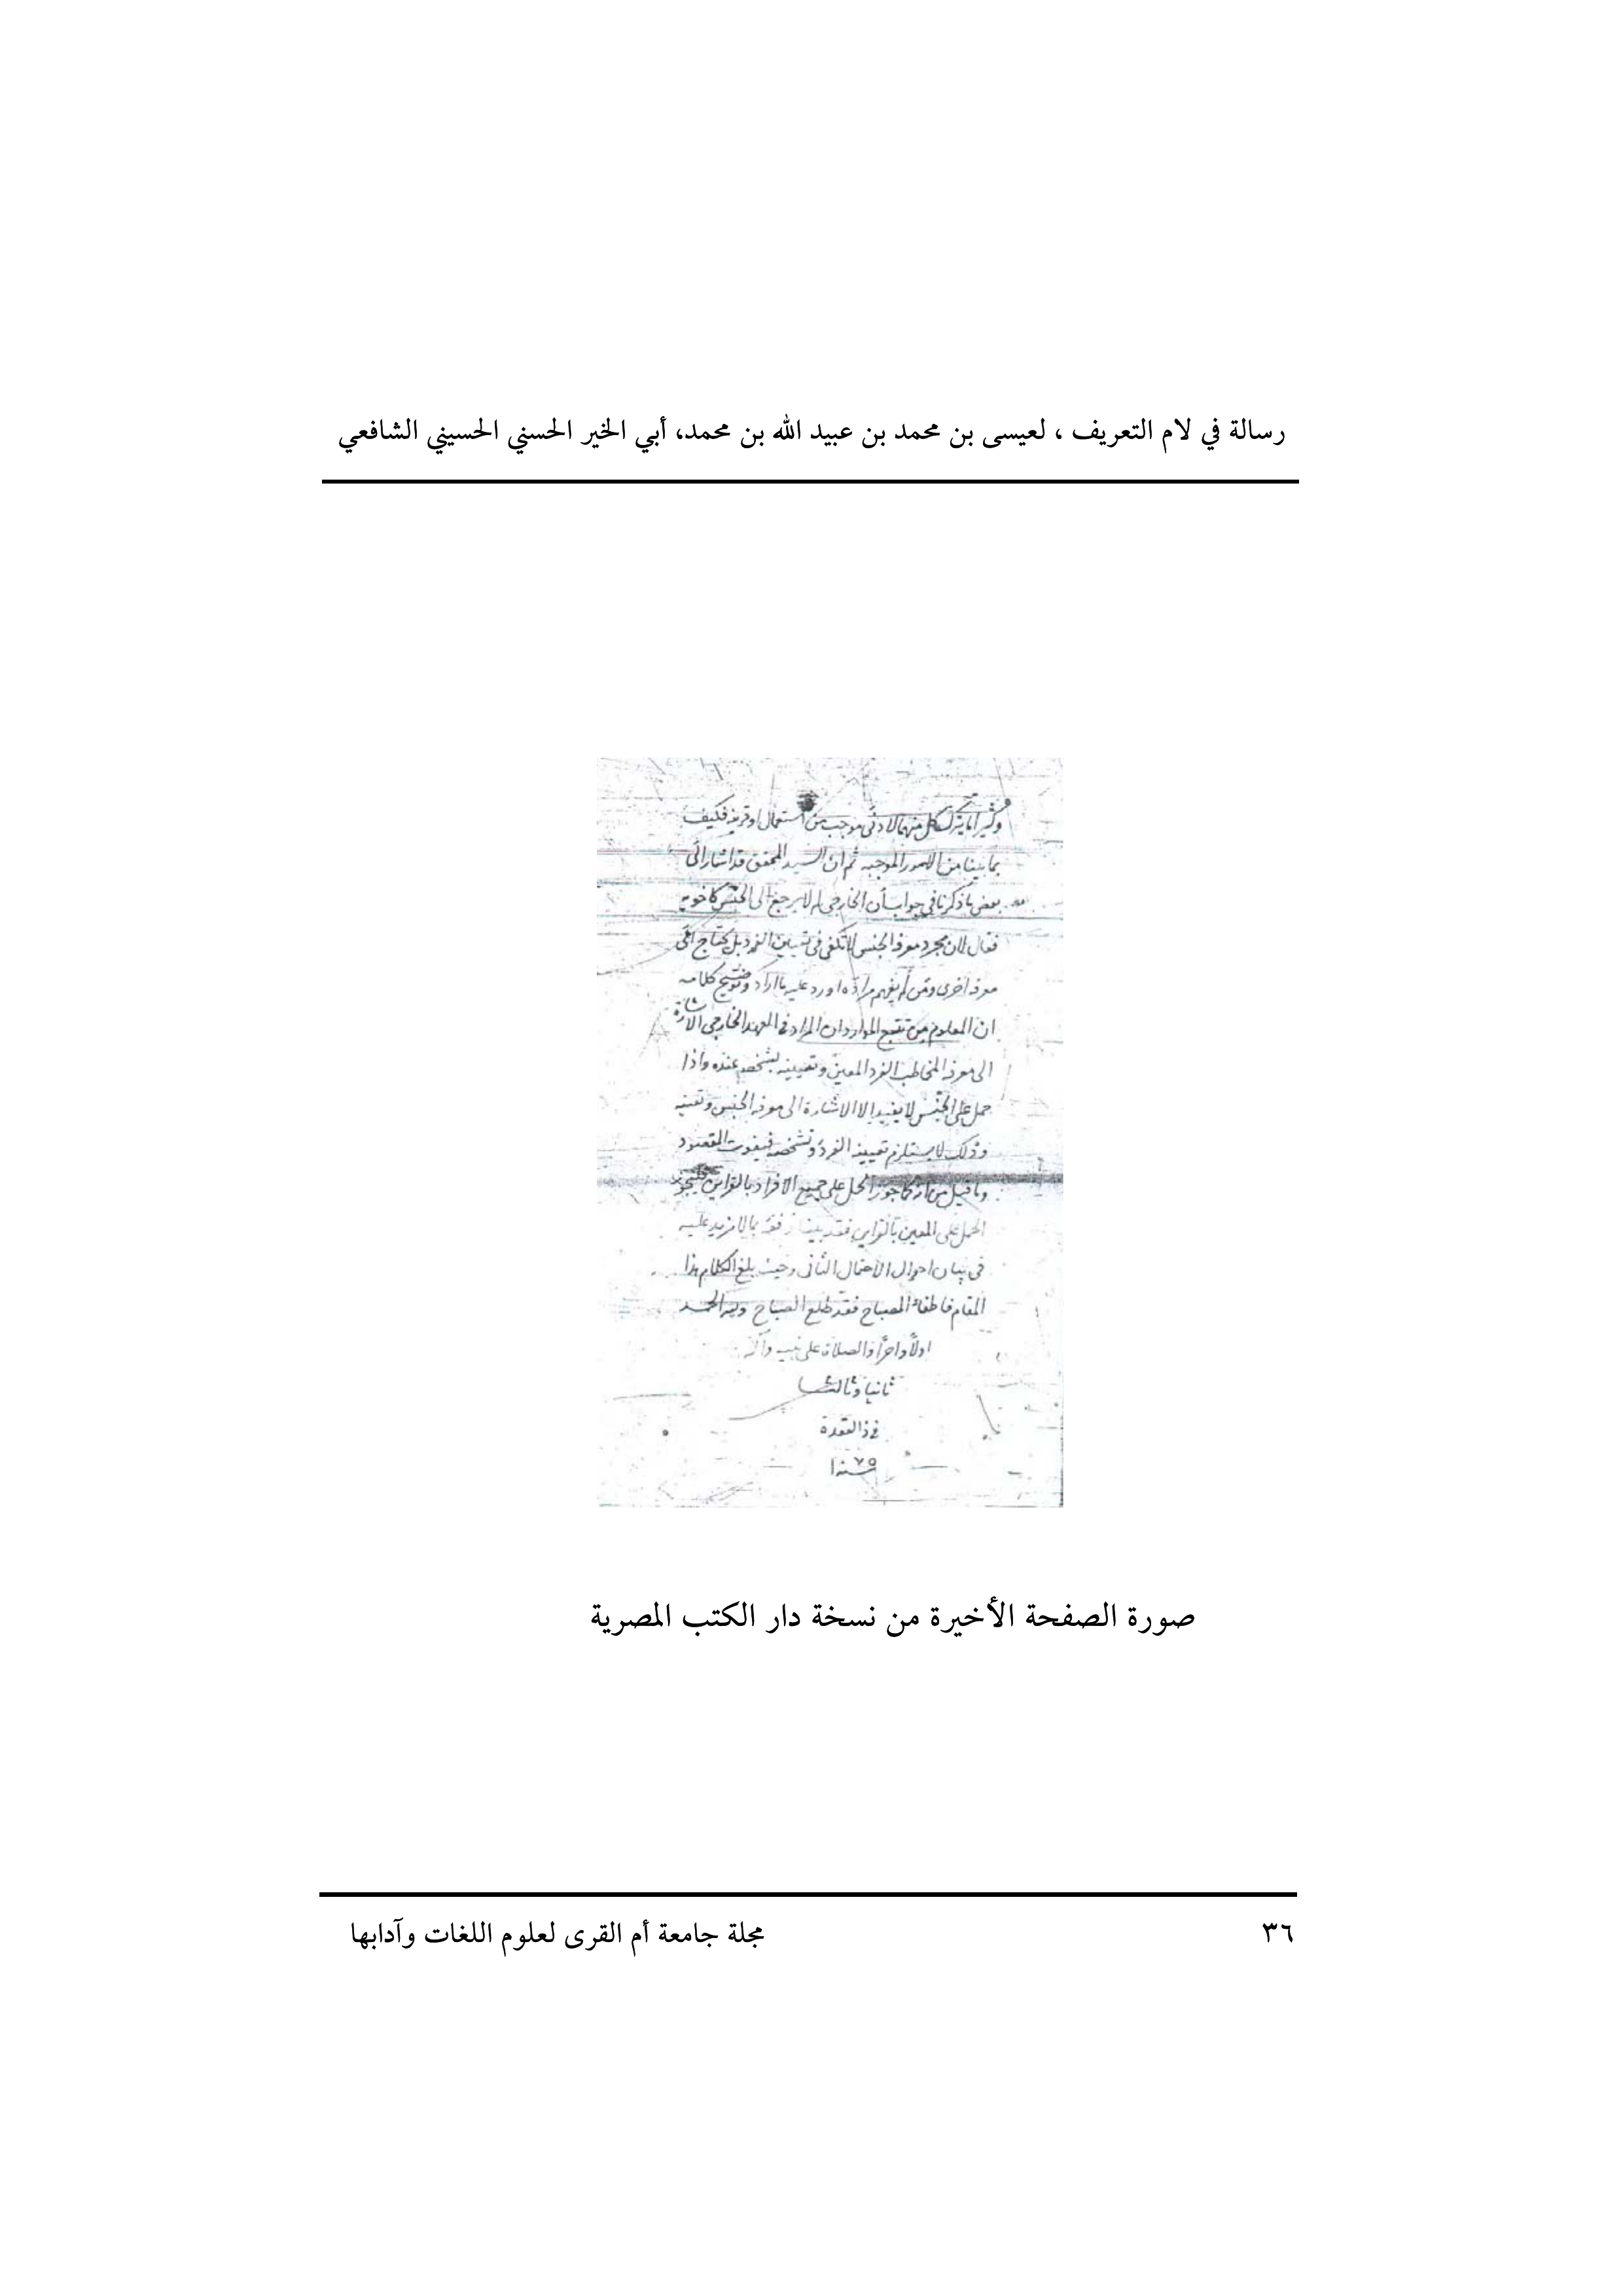 رسالة في لام التعريف ، لعيسى بن محمد بن عبيد الله بن محمد، أبي الخير الحسني الحسيني الشافعي
وكثيرا ما يترك كل منهما لادنى موجب من استعمال او قرينة فكيف
بما بينا من الامور الموجبه ثم ان السيد المحقق قد اشار الى
بعض ما ذكرنا في جواب أن الخارجي لم لا يرجع الى الجنس كاخويه
فقال لان مجرد معرفة الجنس لا تكفى فى تعيين الفرد بل يحتاج الى
معرفة اخرى ومن لم يفهم مراده اورد عليه ما اراد وتوضيح كلامه
ان المعلوم من تتبع الموارد ان المراد في العهد الخارجي الاشارة
الى معرفة المخاطب الفرد المعين وتعيينه بشخصه عنده واذا
حمل على الجنس لا يفيد الا الاشارة الى معرفة الجنس وتعينه
وذلك لا يستلزم تعيينه الفرد وتشخصه فيفوت المقصود
وما قيل من انه كما جوز الحمل على جميع الافراد بالقراين فليجوز
الحمل على المعين بالقراين فقد بينا دفعه بما لا مزيد عليه
في بيان احوال الاحتمال الثانى وحيث بلغ الكلام هذا
المقام فاطفاء المصباح فقد طلع الصباح ولله الحمد
اولًا واخرًا والصلاة على نبيه وآله
ثانيا وثالثا
في ذالقعدة
صورة الصفحة الأخيرة من نسخة دار الكتب المصرية
٣٦
مجلة جامعة أم القرى لعلوم اللغات وآدابها